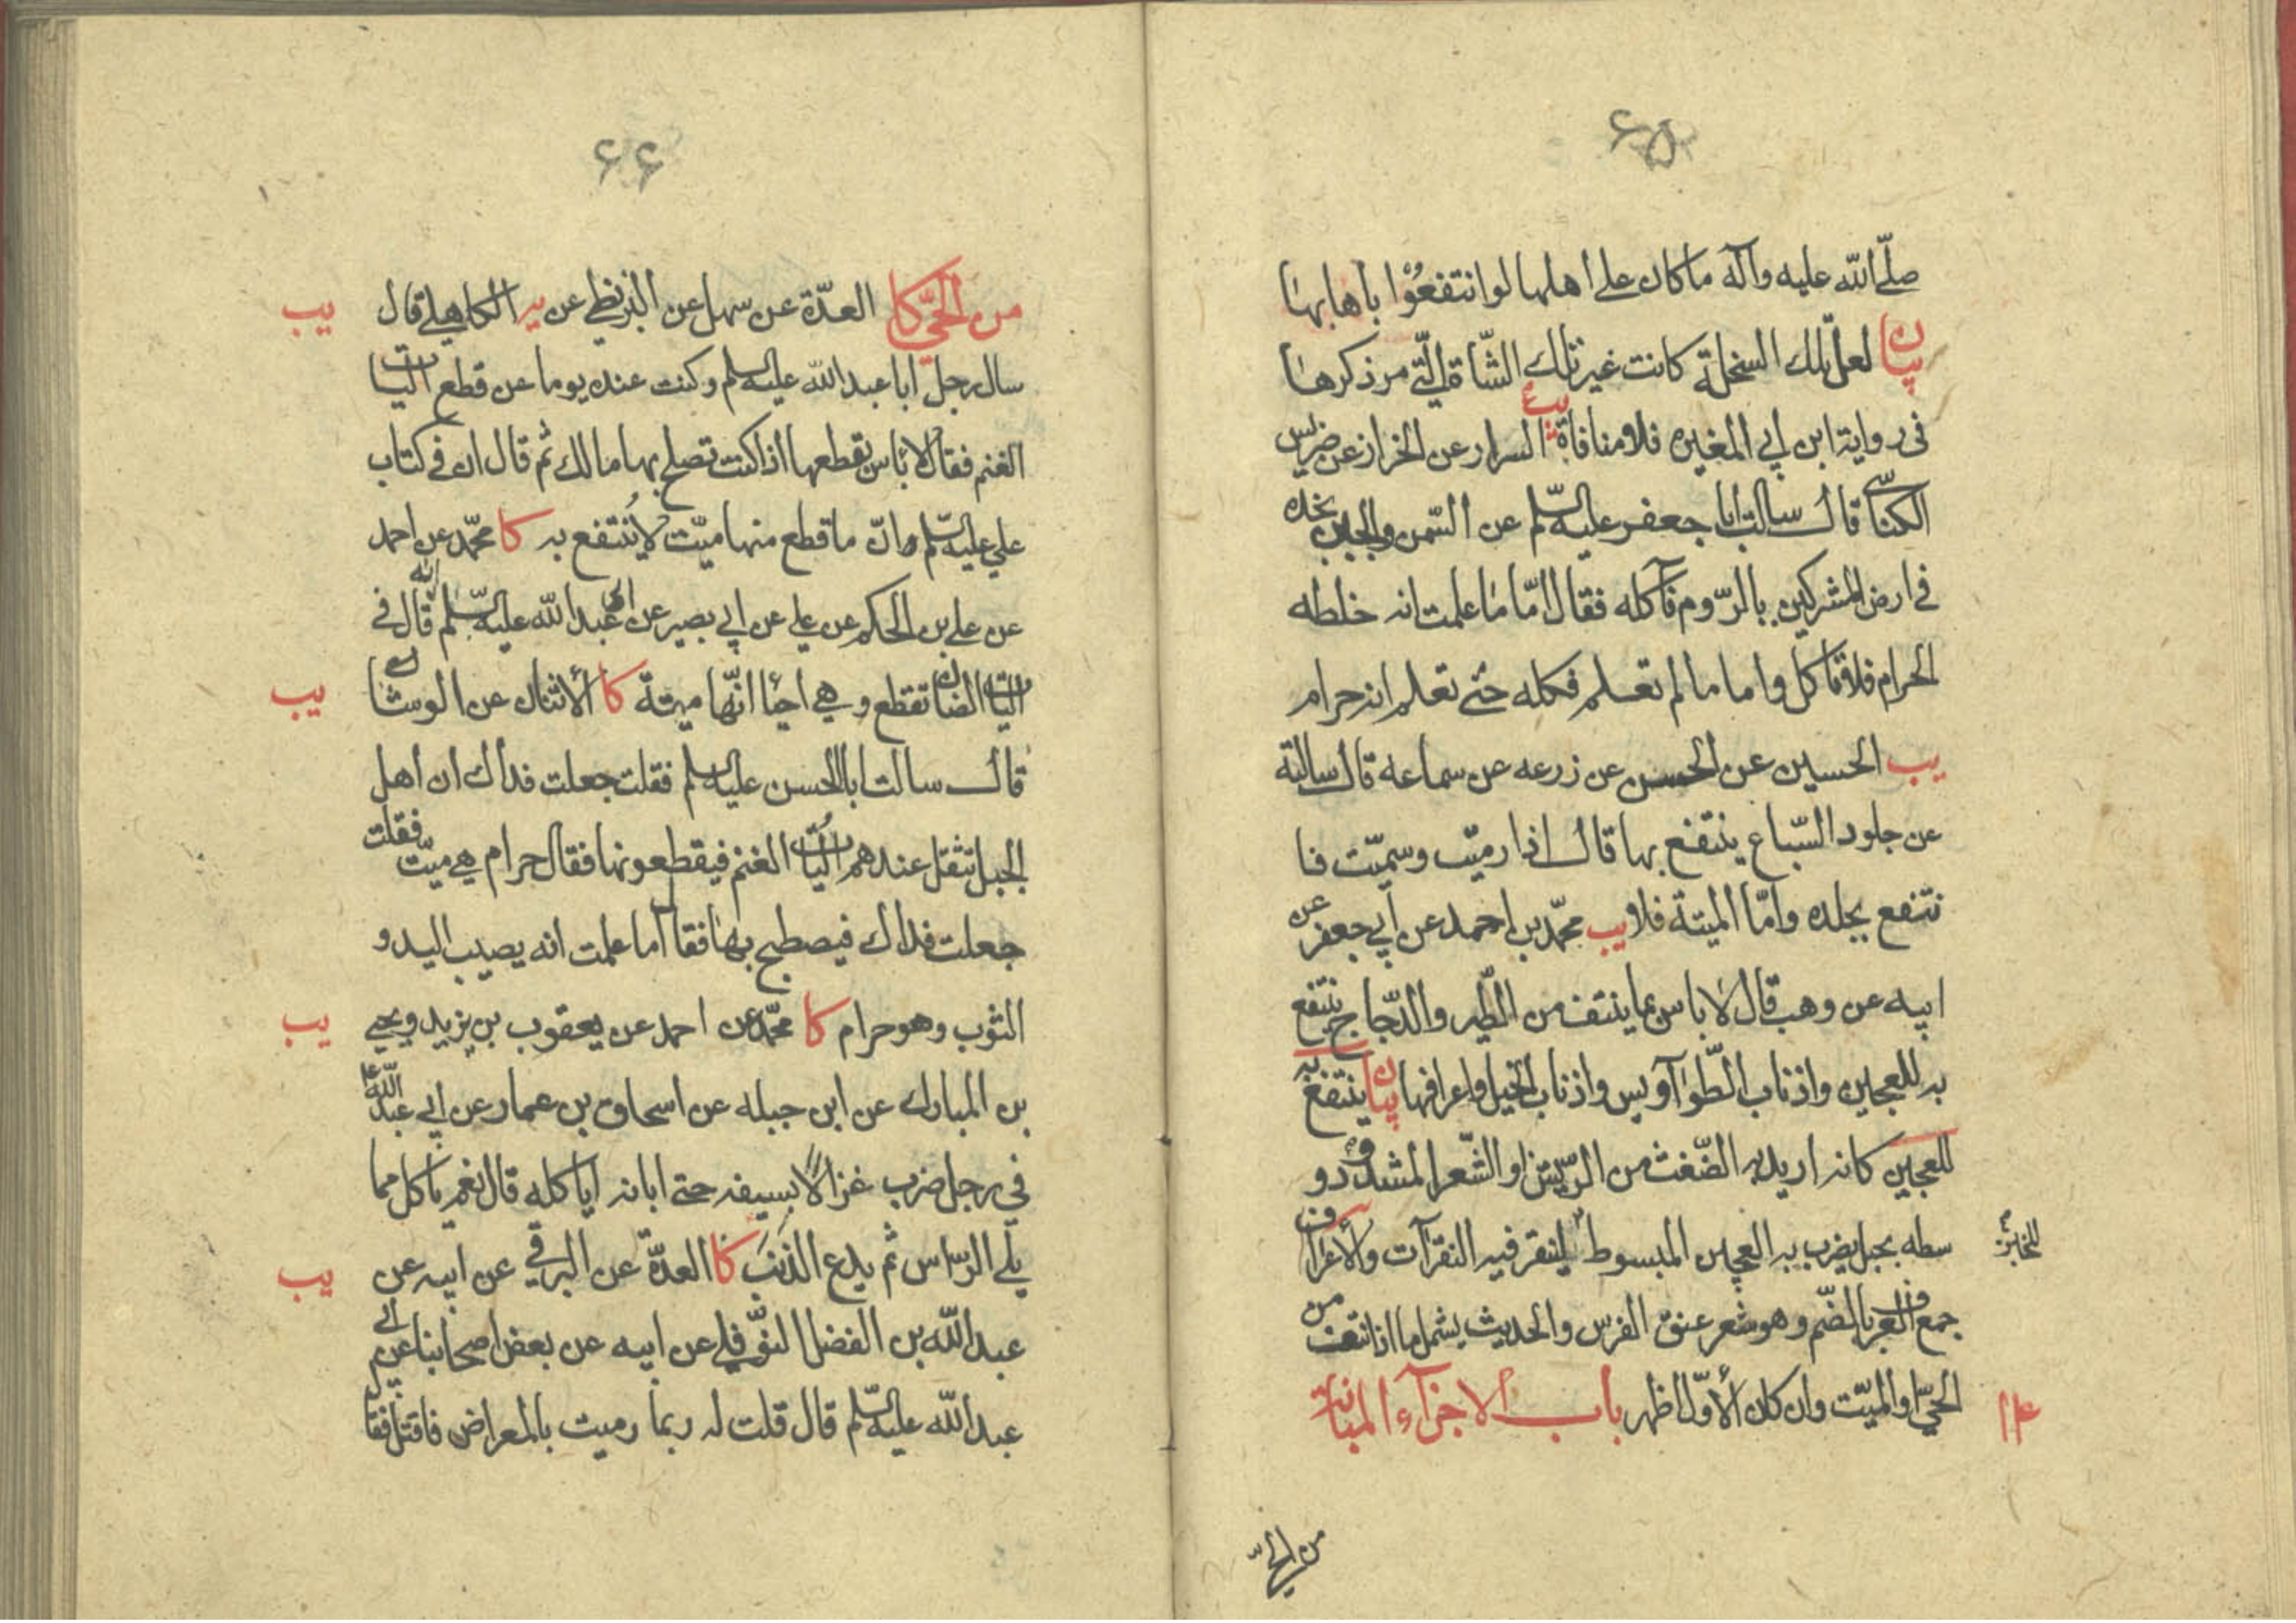 ۶۵
صلّى الله عليه وآله ما كان على أهلها لو انتفعوا بأهابها
بيان لعلّ تلك السخلة كانت غير تلك الشّاة الّتي مر ذكرها
في رواية ابن أبي المغيره فلا منافاة يب السراد عن الخراز عن ضريس
الكناسي قال سالت ابا جعفر عليه السّلم عن السّمن والجبن نجده
في ارض المشركين بالرّوم فآكله فقال امّا ما علمت انه خلطه
الحرام فلا تأكل واما ما لم تعلم فكله حتى تعلم انه حرام
يب الحسين عن الحسن عن زرعه عن سماعه قال سالته
عن جلود السّباع ينتفع بها قال اذا رميت وسمّيت فا
نتفع بجلده وامّا الميتة فلا يب محمّد بن احمد عن أبي جعفر عن
ابيه عن وهب قال لا باس بما ينتف من الطّير والدّجاج ينتفع
به للعجين واذناب الطّوآويس واذناب الخيل واعرافها بيان ينتفع به
للعجين كانه اريد به الضّغث من الرّيش او الشّعر المشدود و
سطه بحبل يضرب به العجين المبسوط لينقر فيه النقرآت والأعراف
للخبز
جمع العرف بالضّم وهو شعر عنق الفرس والحديث يشمل ما اذا نتف من
الحيّ او الميّت وان كان الأوّل اظهر باب الاجزآء المبانة
من الحيّ
۶۶
من الحيّ كا العدّة عن سهل عن البزنطي عن يه الكاهلي قال يب
سال رجل ابا عبد الله عليه السلم وكنت عنده يوما عن قطع اليات
الغنم فقال لا بأس بقطعها اذا كنت تصلح بها مالك ثم قال ان في كتاب
علي عليه السّلم وانّ ما قطع منها ميّت لا ينتفع به كا محمّد عن احمد
عن علي بن الحكم عن علي عن ابي بصير عن ابي عبد الله عليه السّلم انه قال في
اليات الضان تقطع وهي احيا انّها ميتة كا الأثنان عن الوشاء يب
قال سالت ابا الحسن عليه السلم فقلت جعلت فداك ان أهل
الجبل تثقل عندهم اليات الغنم فيقطعونها فقال حرام هي ميّت فقلت
جعلت فداك فيصطبح بها فقال أما علمت انه يصيب اليد و
الثوب وهو حرام كا محمّد عن احمد عن يعقوب بن يزيد ويحيى يب
بن المبارك عن ابن جبله عن اسحاق بن عمار عن أبي عبد الله ع
في رجل ضرب غزالا بسيفه حتى ابانه ايا كله قال نعم يأكل مما
يلي الرّاس ثم يدع الذنب كا العدّة عن البرقي عن ابيه عن يب
عبد الله بن الفضل النّوفلي عن ابيه عن بعض اصحابنا عن أبي
عبد الله عليه السّلم قال قلت له ربما رميت بالمعراض فاقتل فقا